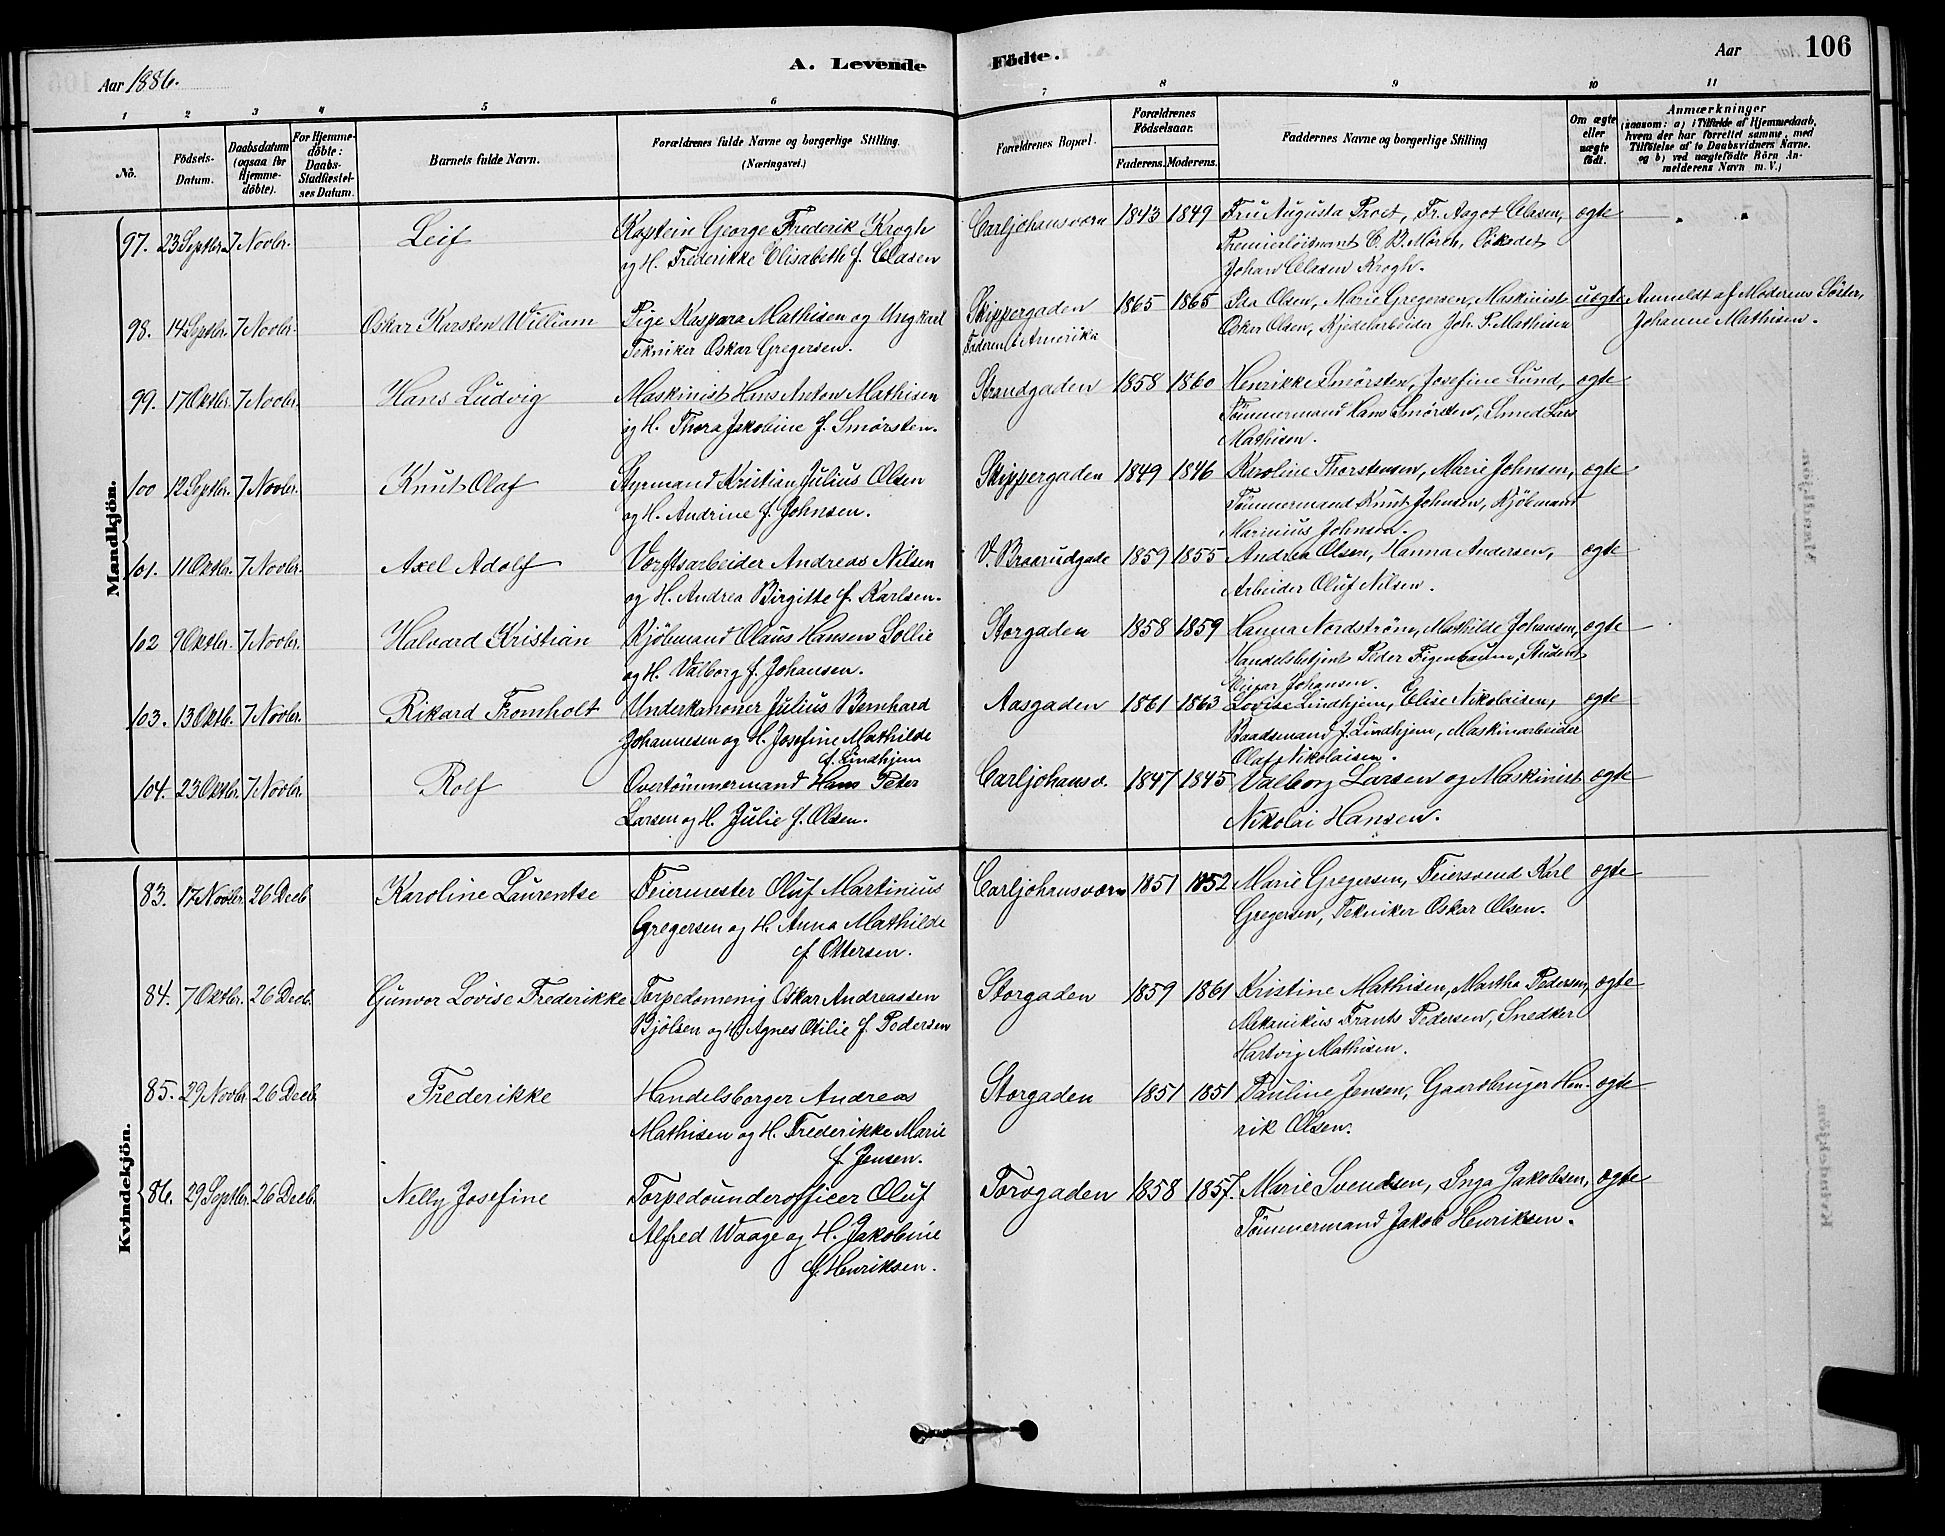 Aar 1886.
A. Levende
Födte.
Aar
106
1 2 3 4 5 6 7 8 9 10 11
No.
Födsels-
Datum.
Daabsdatum
(ogsaa for
Hjemme-
döbte).
For Hjemme-
döbte:
Daabs-
Stadfæstel-
ses Datum.
Barnets fulde Navn.
Forældrenes fulde Navne og borgerlige Stilling.
(Næringsvei.)
Forældrenes Bopæl.
Forældrenes
Födselsaar.
Faderens. Moderens.
Faddernes Navne og borgerlige Stilling
Om ægte
eller
uægte
født.
Anmærkninger
(saasom: a) i Tilfælde af Hjemmedaab,
hvem der har forrettet samme, med
Tilföielse af to Daabsvidners Navne.
og b) ved uægtefödte Börn An-
melderens Navn m. V.)
Mandkjön.
97. 23 Septbr. 7 Novbr. Leif Kaptein George Frederik Krogh Carljohansværn 1843 1849 Fru Augusta Proet, Fr. Aagot Clasen, ægte
og H. Frederikke Elisabeth f. Clasen Premierløitnant C. B. Mörch, Søkadet
Johan Clasen Krogh.
98. 14 Septbr. 7 Novbr. Oskar Karsten William Pige Kaspara Mathisen og Ungkarl Skippergaden 1865 1865 Ida Olsen, Marie Gregersen, Maskinist uægte Anmeldt af Moderens Söster,
Tekniker Oskar Gregersen. Faderen i Amerika Oskar Olsen, Kjedelarbeider Joh. P. Mathisen Johanne Mathisen.
99. 17 Oktbr. 7 Novbr. Hans Ludvig Maskinist Hans Anton Mathisen Strandgaden 1858 1860 Henrikke Smørsten, Josefine Lund, ægte
og H. Thora Jakobine f. Smørsten. Tömmermand Hans Smørsten, Smed Lars
Mathisen.
100 12 Septbr. 7 Novbr. Knut Olaf Styrmand Kristian Julius Olsen Skippergaden 1849 1846 Karoline Thorstensen, Marie Johnsen, ægte
og H. Andrine f. Johnsen. Tömmermand Knut Johnsen, Kjöbmand
Marinius Johnsen.
101. 11 Oktbr. 7 Novbr. Axel Adolf Værftsarbeider Andreas Nilsen V. Braarudgade 1859 1855 Andrea Olsen, Hanna Andersen, ægte
og H. Andrea Birgitte f. Karlsen. Arbeider Oluf Nilsen.
102 9 Oktbr. 7 Novbr. Halvard Kristian Kjöbmand Olaus Hansen Sollie Storgaden 1858 1859 Hanna Nordström, Mathilde Johansen, ægte
og H. Valborg f. Johansen. Handelsbetjent Peder Figenbaum, Student
Einar Johansen.
103. 13 Oktb. 7 Novbr. Rikard Fromholt Underkanoner Julius Bernhard Aasgaden 1861 1863 Lovise Lindhjem, Elise Nikolaisen, ægte
Johannesen og H. Josefine Mathilde Baadsmand J. Lindhjem, Maskinarbeider
f. Lindhjem Olaf Nikolaisen.
104. 23 Oktbr. 7 Novbr. Rolf Overtömmermand Hans Peter Carljohansv. 1847 1845 Valborg Larsen og Maskinist ægte
Larsen og H. Julie f. Olsen. Nikolai Hansen.
Kvindekjön.
83. 17 Novbr. 26 Decb Karoline Laurentse Feiermester Oluf Martinius Carljohansværn 1851 1852 Marie Gregersen, Feiersvend Karl ægte
Gregersen og H. Anna Mathilde Gregersen, Tekniker Oskar Olsen.
f. Ottersen.
84. 7 Oktbr. 26 Decb. Gunvor Lovise Frederikke Torpedomenig Oskar Andreassen Storgaden 1859 1861 Kristine Mathisen, Martha Pedersen, ægte
Bjölsen og H. Agnes Otilie f. Pedersen Mekanikus Frants Pedersen, Snedker
Hartvig Mathisen.
85. 29 Novbr. 26 Decb. Frederikke Handelsborger Andreas Storgaden 1851 1851 Pauline Jensen, Gaardbruger Hen- ægte
Mathisen og H. Frederikke Marie rik Olsen.
f. Jensen.
86. 29 Septbr. 26 Decb. Nelly Josefine Torpedounderofficer Oluf Torvgaden 1858 1857. Marie Svendsen, Inga Jakobsen, ægte
Alfred Waage og H. Jakobine Tömmermand Jakob Henriksen.
f. Henriksen.